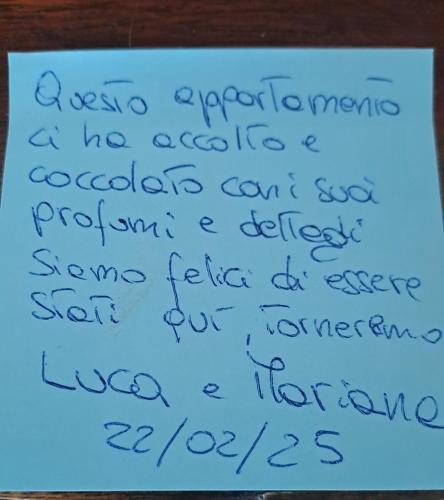 Questo appartamento
ci ha accolto e
coccolato con i suoi
profumi e dettagli
Siamo felici di essere
stati qui, torneremo
Luca e Mariana
22/02/25